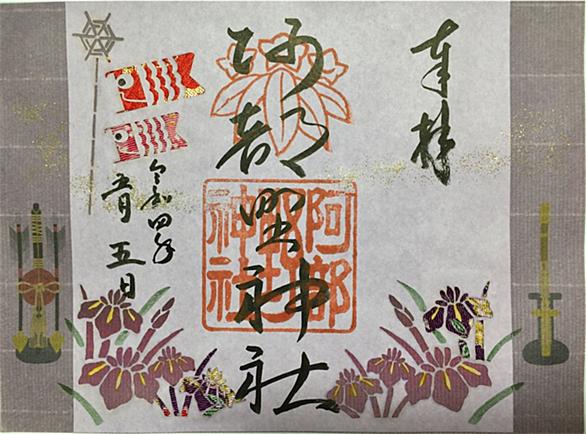 奉拝
阿部野神社
阿部野神社
令和四年
五月五日